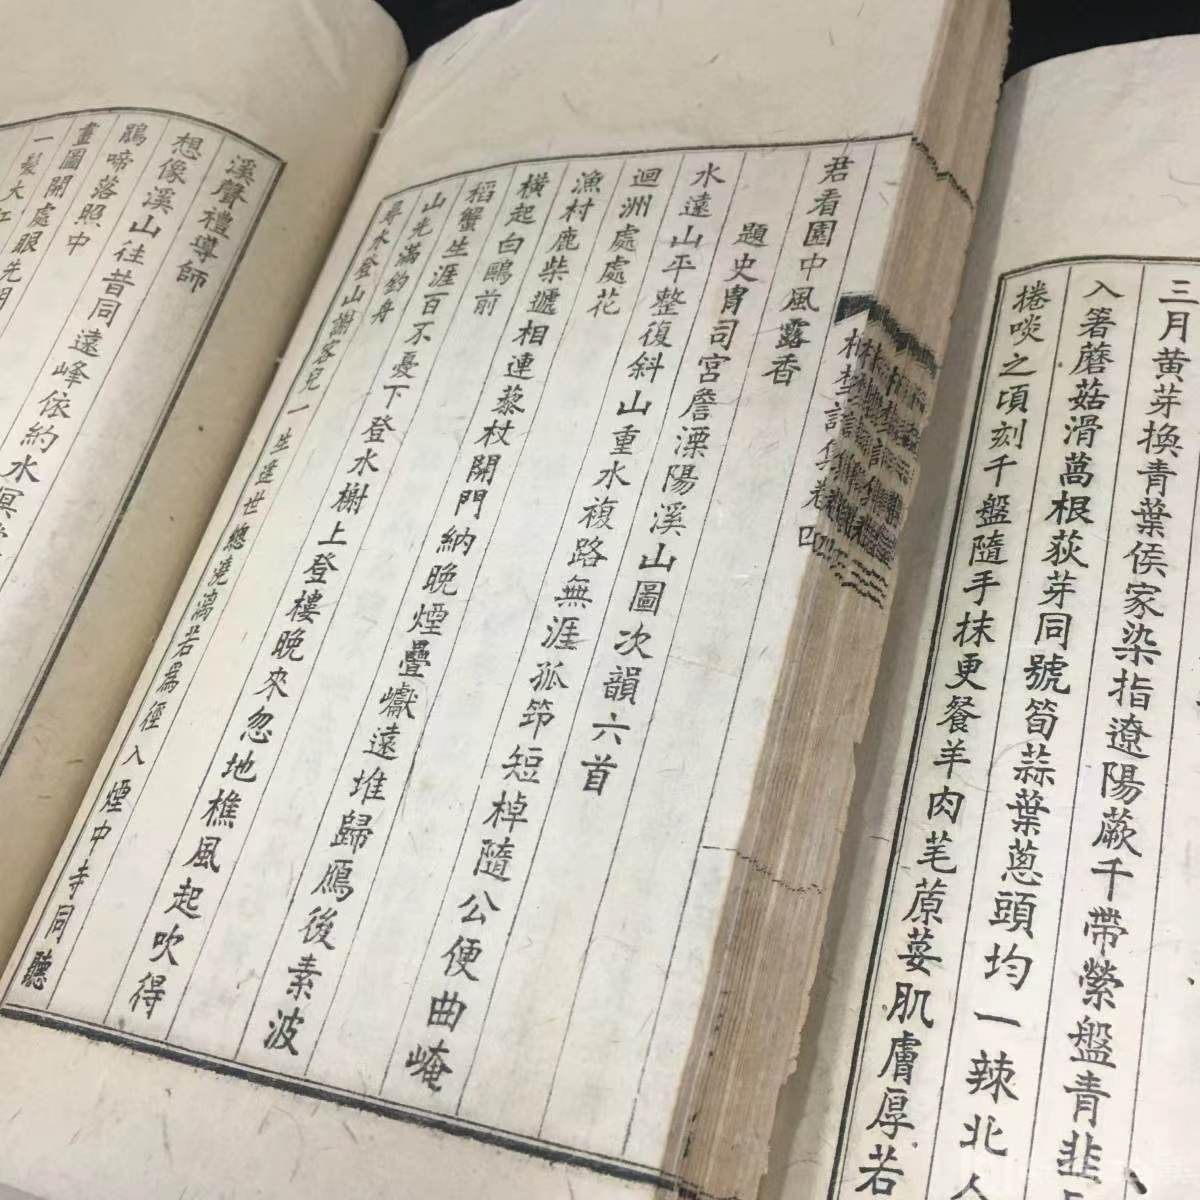 三月黃芽換青葉侯家染指遼陽蕨千帶縈盤青韭
入箸蘑菇滑萬根荻芽同號筍蒜葉蔥頭均一辣北人
捲啖之頃刻千盤隨手抹更餐羊肉芼蒝荽肌膚厚若
君看園中風露香
題史胄司宮詹溧陽溪山圖次韻六首
水遠山平整復斜山重水複路無涯孤筇短棹隨公便曲崦
迴洲處處花
漁村鹿柴遞相連藜杖開門納晚煙疊巘遠堆歸鴈後素波
橫起白鷗前
稻蟹生涯百不憂下登水榭上登樓晚來忽地樵風起吹得
山光滿釣舟
尋水登山謝客兒一生送世總澆漓若為徑入煙中寺同聽
溪聲禮導師
想像溪山往昔同遠峰依約水冥
鵑啼落照中
畫圖開處眼先明
一髮大江
卷四